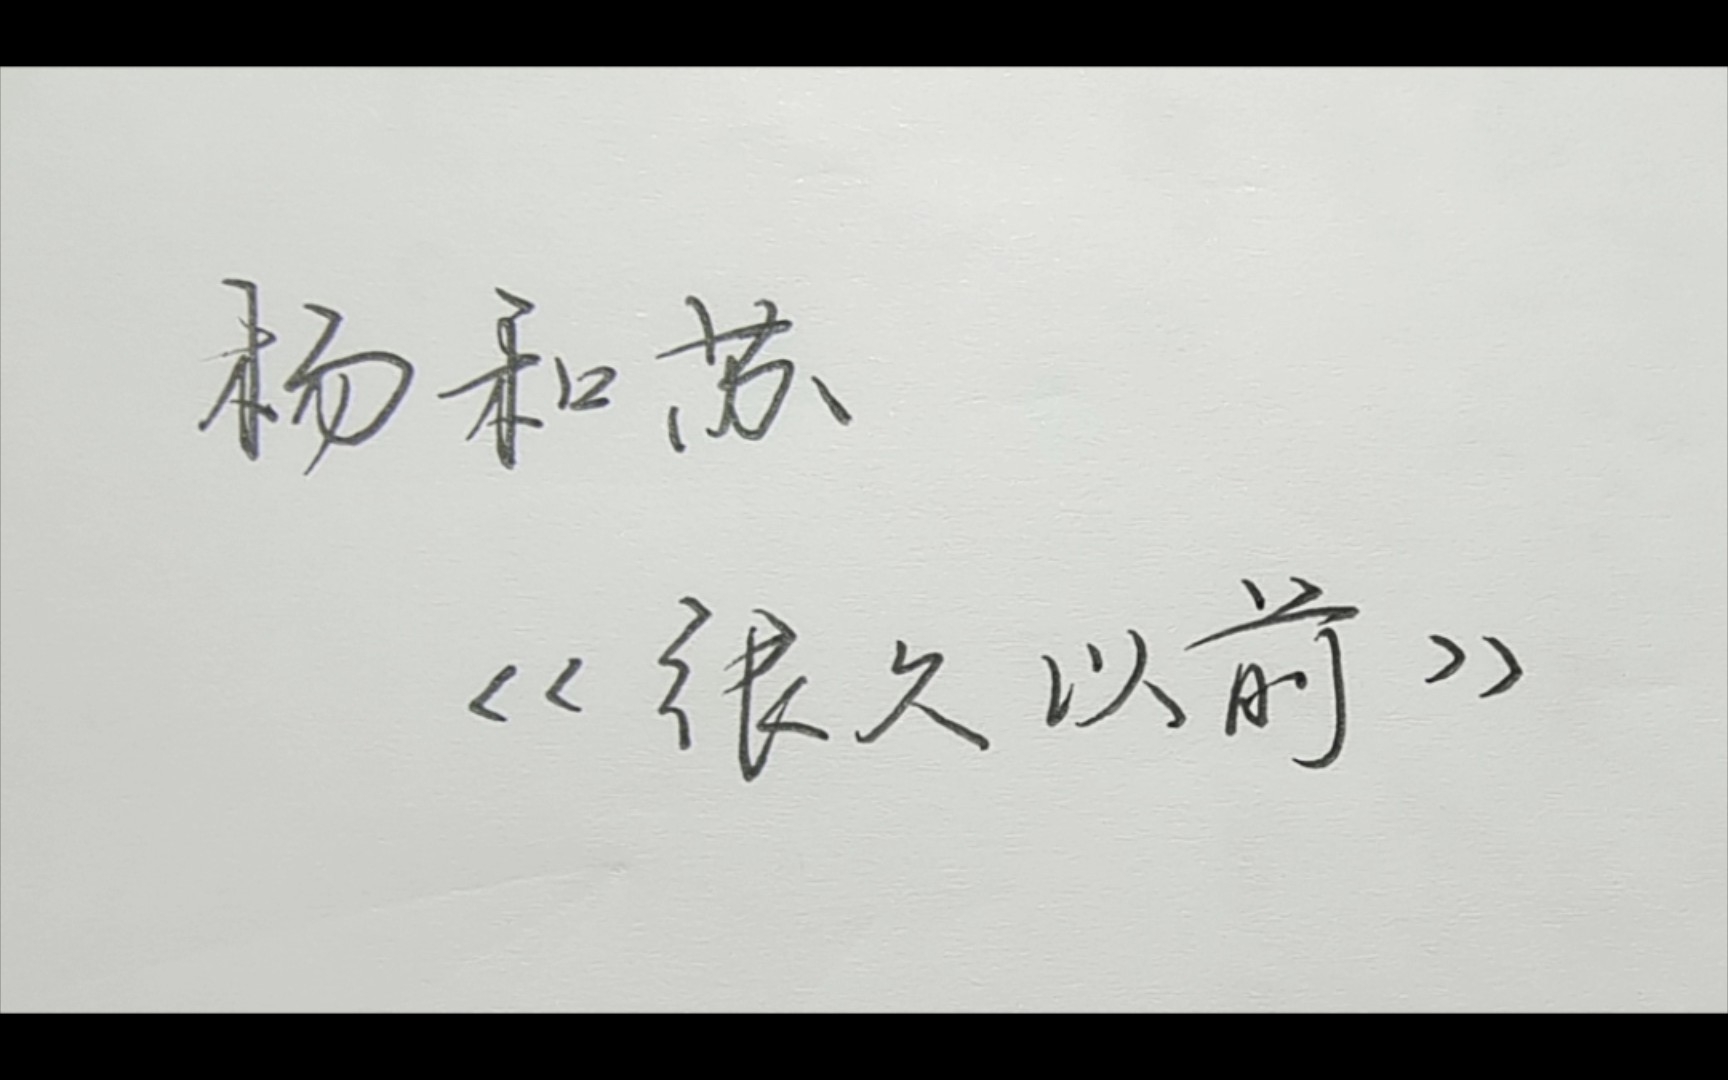 杨和苏
<<很久以前>>